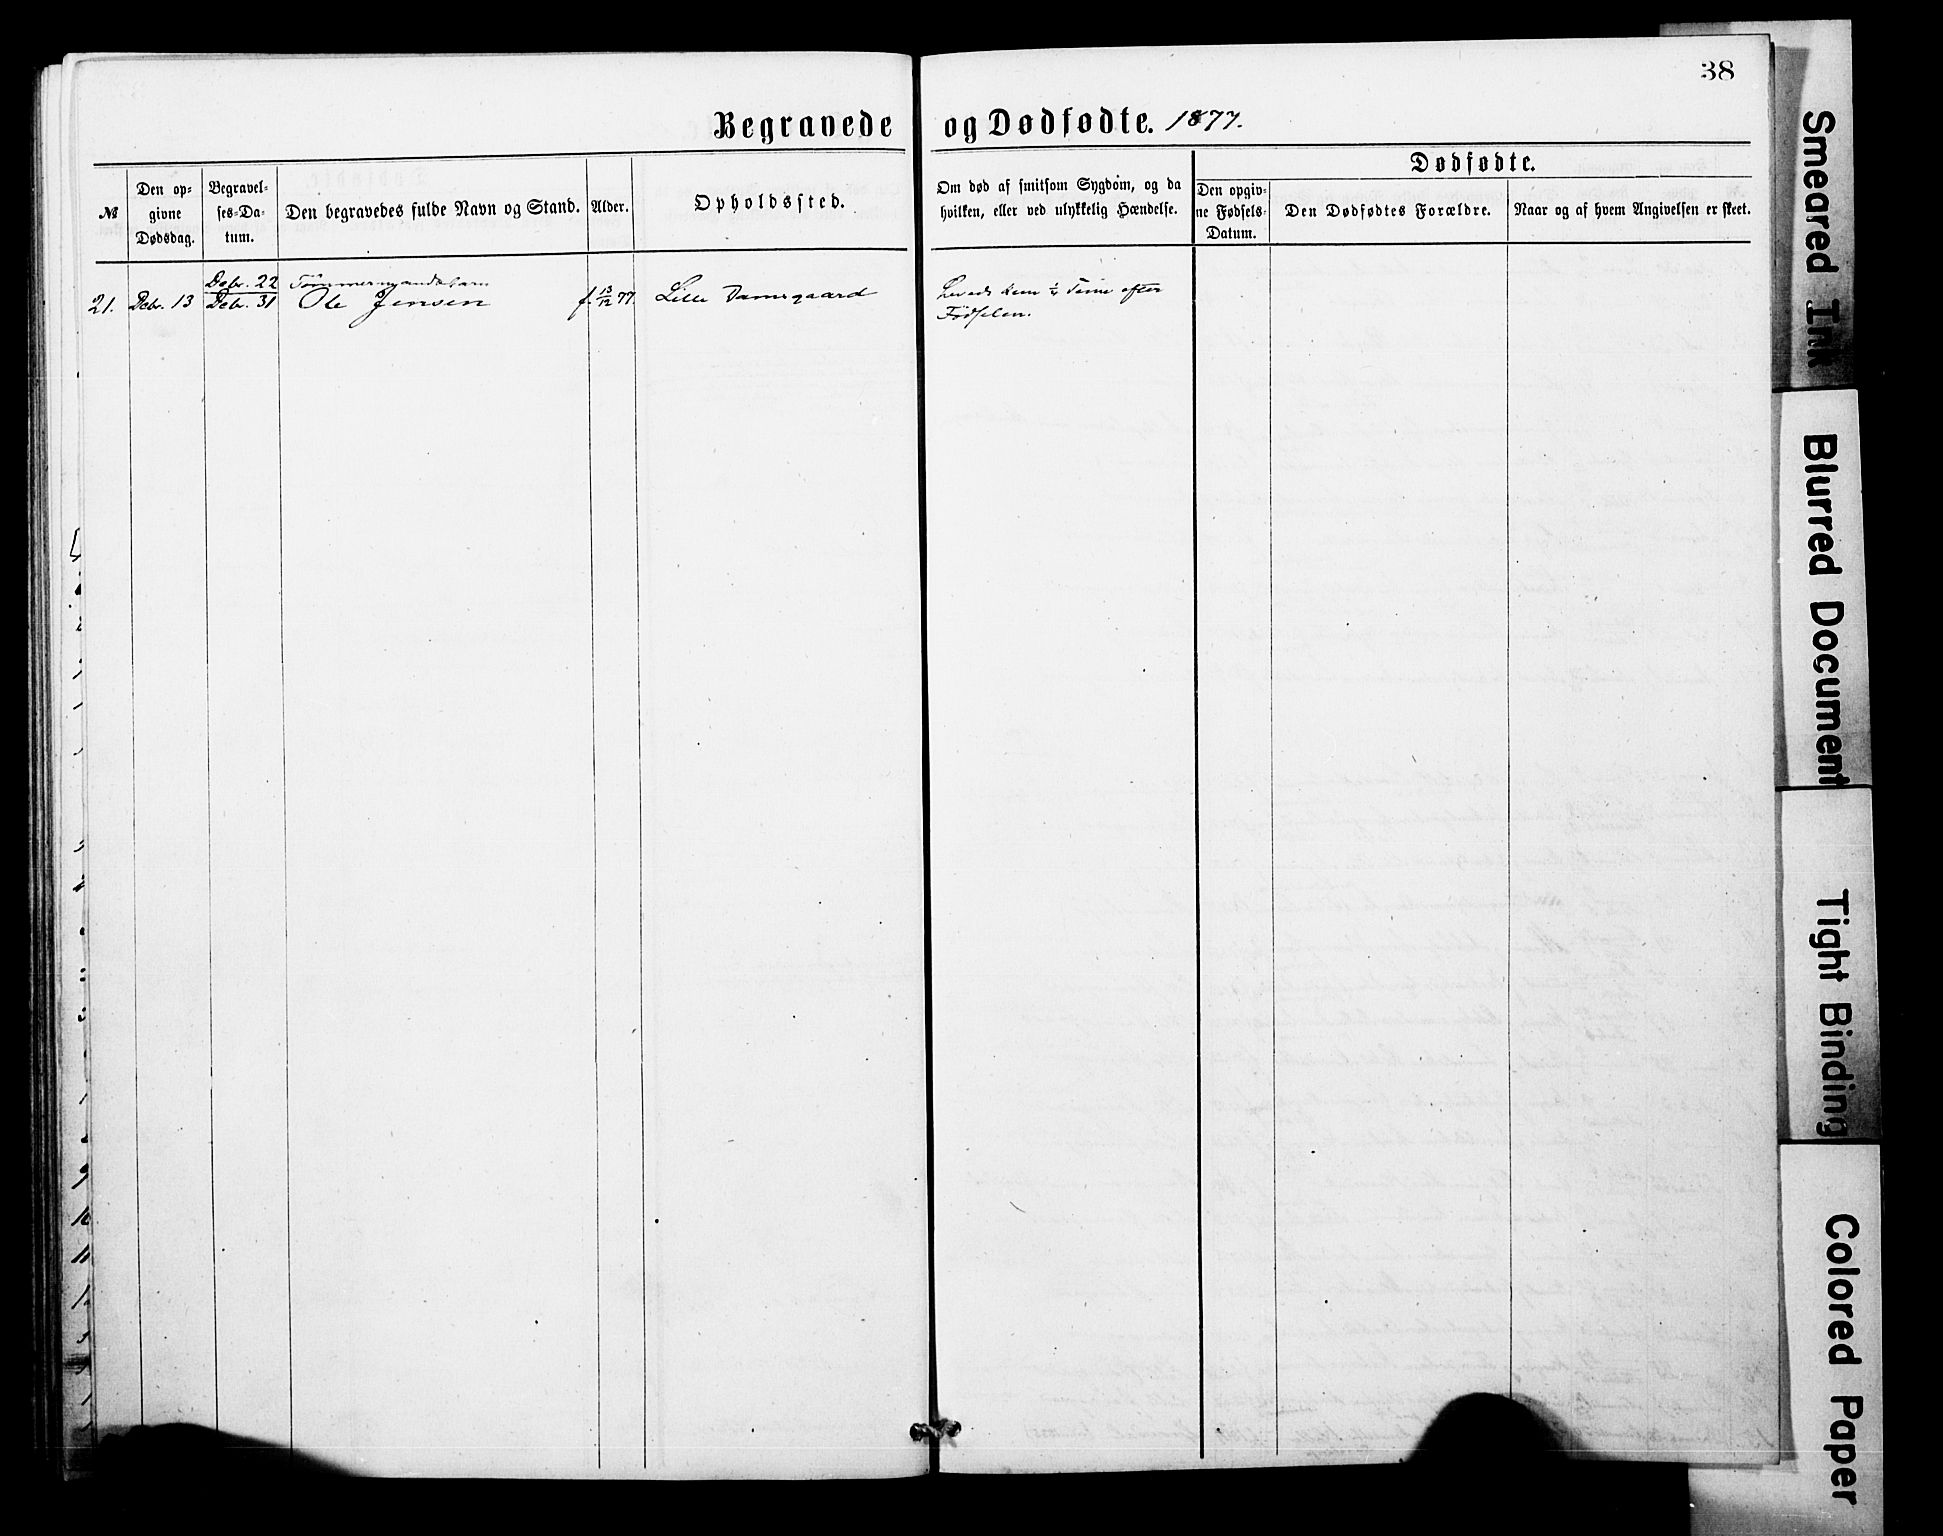 38
Begravede og Dødfødte. 1877.
№
Den op=
givne
Dødsdag.
Begravel=
ses=Da=
tum.
Den begravedes fulde Navn og Stand.
Alder.
Opholdssted.
Om død af smitsom Sygdom, og da
hvilken, eller ved ulykkelig Hændelse.
Dødfødte.
Den opgiv=
ne Fødsels=
Datum.
Den Dødfødtes Forældre.
Naar og af hvem Angivelsen er skeet.
21.
Debr. 13
Debr. 22
Debr. 31
Tømmermandsbarn
Ole Jensen
f. 13/12 77.
Lille Damsgaard
Levede kun ½ Time efter
Fødselen.
Smeared Ink
Blurred Document
Tight Binding
Colored Paper